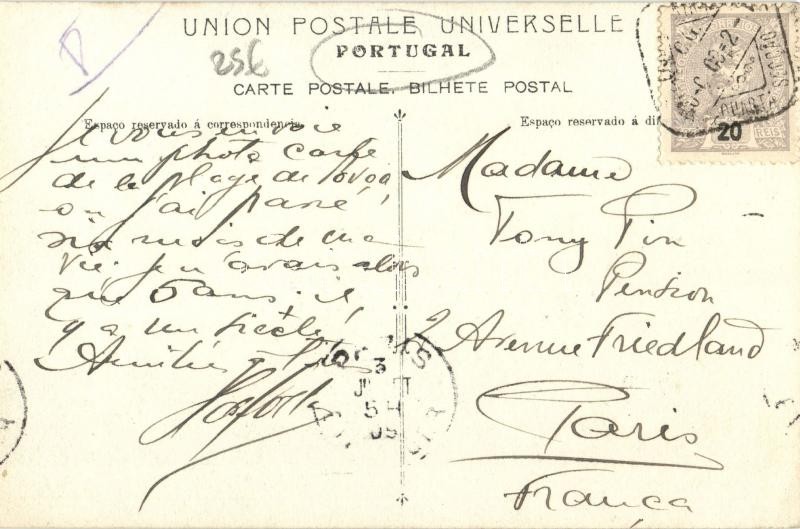 UNION POSTALE UNIVERSELLE
PORTUGAL
25€
CARTE POSTALE, BILHETE POSTAL
Espaço reservado á correspondencia
Espaço reservado á di
CORREIOS
20
REIS
Je vous envoie
une photo carte
de la plage de
où j'ai passé
six mois de ma
vie. Je n'avais alors
que 5 ans, il
y a un siècle!
Amitiés
Madame
Tony Pin
Pension
2 Avenue Friedland
Paris
França
PARIS
3
5
05